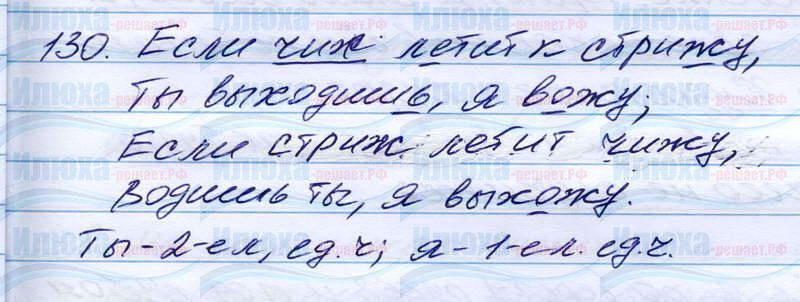 130. Если чиж летит к стрижу,
Ты выходишь, я вожу;
Если стриж летит чижу,
Водишь ты, я выхожу.
Ты - 2-ел, ед.ч; я - 1-ел. ед.ч.